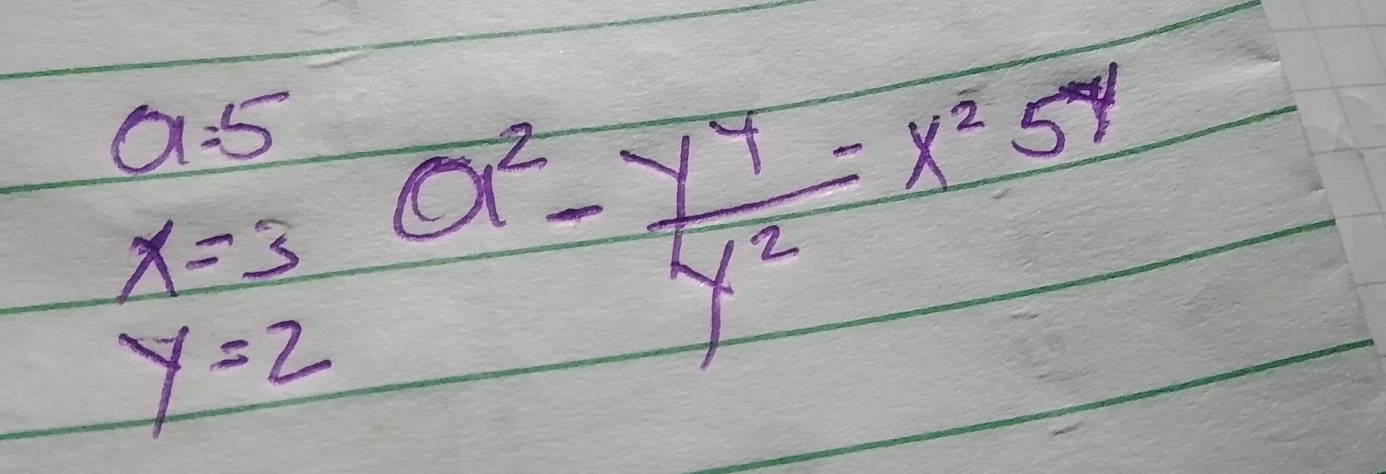 a=5
x=3
y=2
a² - y^y / y² - x² 5^y